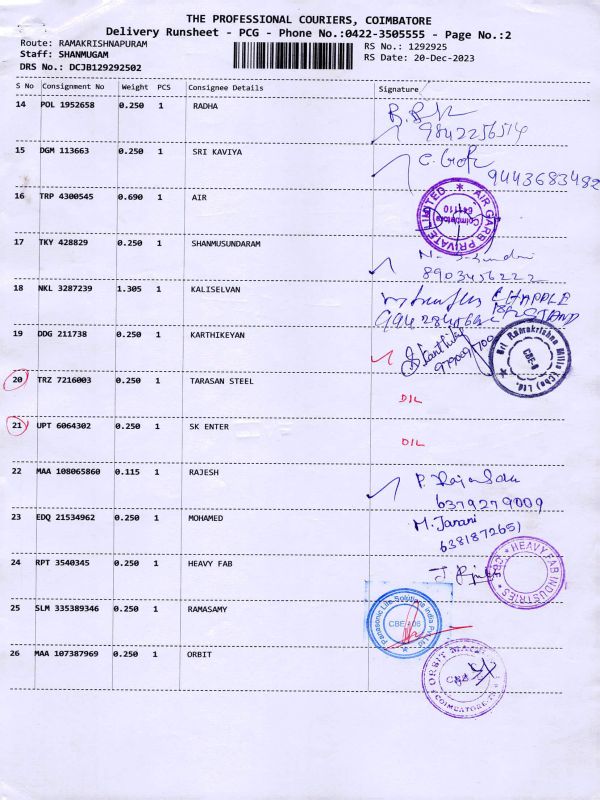 THE PROFESSIONAL COURIERS, COIMBATORE
Delivery Runsheet - PCG - Phone No.:0422-3505555 - Page No.:2
Route: RAMAKRISHNAPURAM
RS No.: 1292925
Staff: SHANMUGAM
RS Date: 20-Dec-2023
DRS No.: DCJB129292502
S No Consignment No Weight PCS Consignee Details Signature
14 POL 1952658 0.250 1 RADHA
9842256514
15 DGM 113663 0.250 1 SRI KAVIYA
9443683482
16 TRP 4300545 0.690 1 AIR
AIR CARB PRIVATE LIMITED
Coimbatore
641110
17 TKY 428829 0.250 1 SHANMUSUNDARAM
8903456222
18 NKL 3287239 1.305 1 KALISELVAN
19 DDG 211738 0.250 1 KARTHIKEYAN
Karthikey
Sri Ramakrishna Mills (Cbe) Ltd.
20 TRZ 7216003 0.250 1 TARASAN STEEL DIL
21 UPT 6064302 0.250 1 SK ENTER DIL
22 MAA 108065860 0.115 1 RAJESH
6379279009
23 EDQ 21534962 0.250 1 MOHAMED M. Janani
6381872651
24 RPT 3540345 0.250 1 HEAVY FAB
HEAVY FAB INDUSTRIES
25 SLM 335389346 0.250 1 RAMASAMY
Panasonic Life Solutions India Pvt Ltd
26 MAA 107387969 0.250 1 ORBIT
ORBIT
COIMBATORE